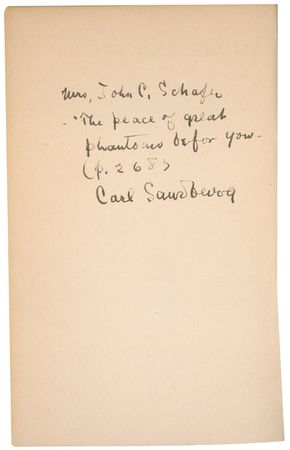 Mrs. John C. Schafer
- "The peace of great
phantoms be for you -
(p. 268)
Carl Sandburg